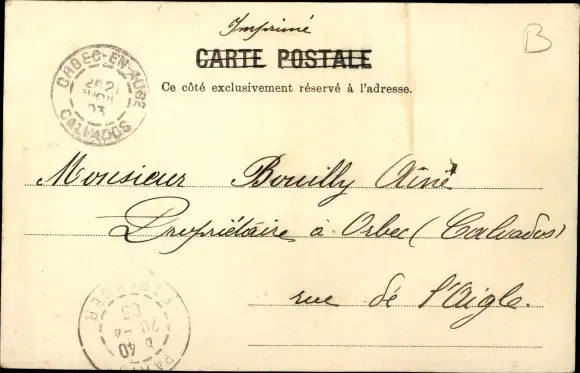 Imprimé
CARTE POSTALE
Ce côté exclusivement réservé à l'adresse.
B
ORBEC-EN-AUGE
CALVADOS
Monsieur Bouilly Aîné
Propriétaire à Orbec (Calvados)
rue de l'Aigle.
PARIS
ETRANGER
40